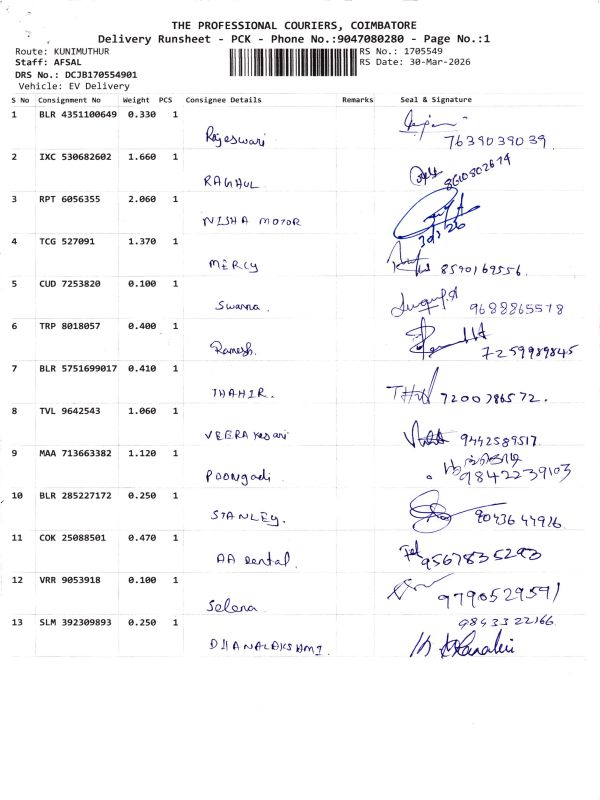 THE PROFESSIONAL COURIERS, COIMBATORE
Delivery Runsheet - PCK - Phone No.:9047080280 - Page No.:1
Route: KUNIMUTHUR
RS No.: 1705549
Staff: AFSAL
RS Date: 30-Mar-2026
DRS No.: DCJB170554901
Vehicle: EV Delivery
S No Consignment No Weight PCS Consignee Details Remarks Seal & Signature
1 BLR 4351100649 0.330 1
Rajeswari 7639039039
2 IXC 530682602 1.660 1
RAGHUL
3 RPT 6056355 2.060 1
NISHA MOTOR
4 TCG 527091 1.370 1
MERCY 8590169556
5 CUD 7253820 0.100 1
Swarna 9688865578
6 TRP 8018057 0.400 1
Ramesh 7259989845
7 BLR 5751699017 0.410 1
THAHIR. 7200786572.
8 TVL 9642543 1.060 1
VEERA Kesari 9442589517
9 MAA 713663382 1.120 1
Poongodi 9842239103
10 BLR 285227172 0.250 1
STANLEY. 9043644926
11 COK 25088501 0.470 1
AA Dental. 9567835293
12 VRR 9053918 0.100 1
Selena 9790529591
13 SLM 392309893 0.250 1
9843322166
DHANALAKSHMI